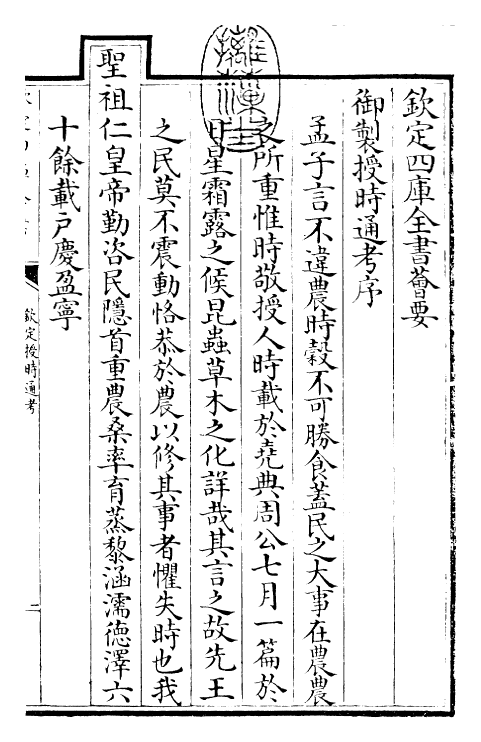 欽定四庫全書薈要
御製授時通考序
孟子言不違農時穀不可勝食蓋民之大事在農農
之所重惟時敬授人時載於堯典周公七月一篇於
日星霜露之候昆蟲草木之化詳哉其言之故先王
之民莫不震動恪恭於農以修其事者懼失時也我
聖祖仁皇帝勤咨民隱首重農桑率育蒸黎涵濡德澤六
十餘載戶慶盈寧
欽定授時通考